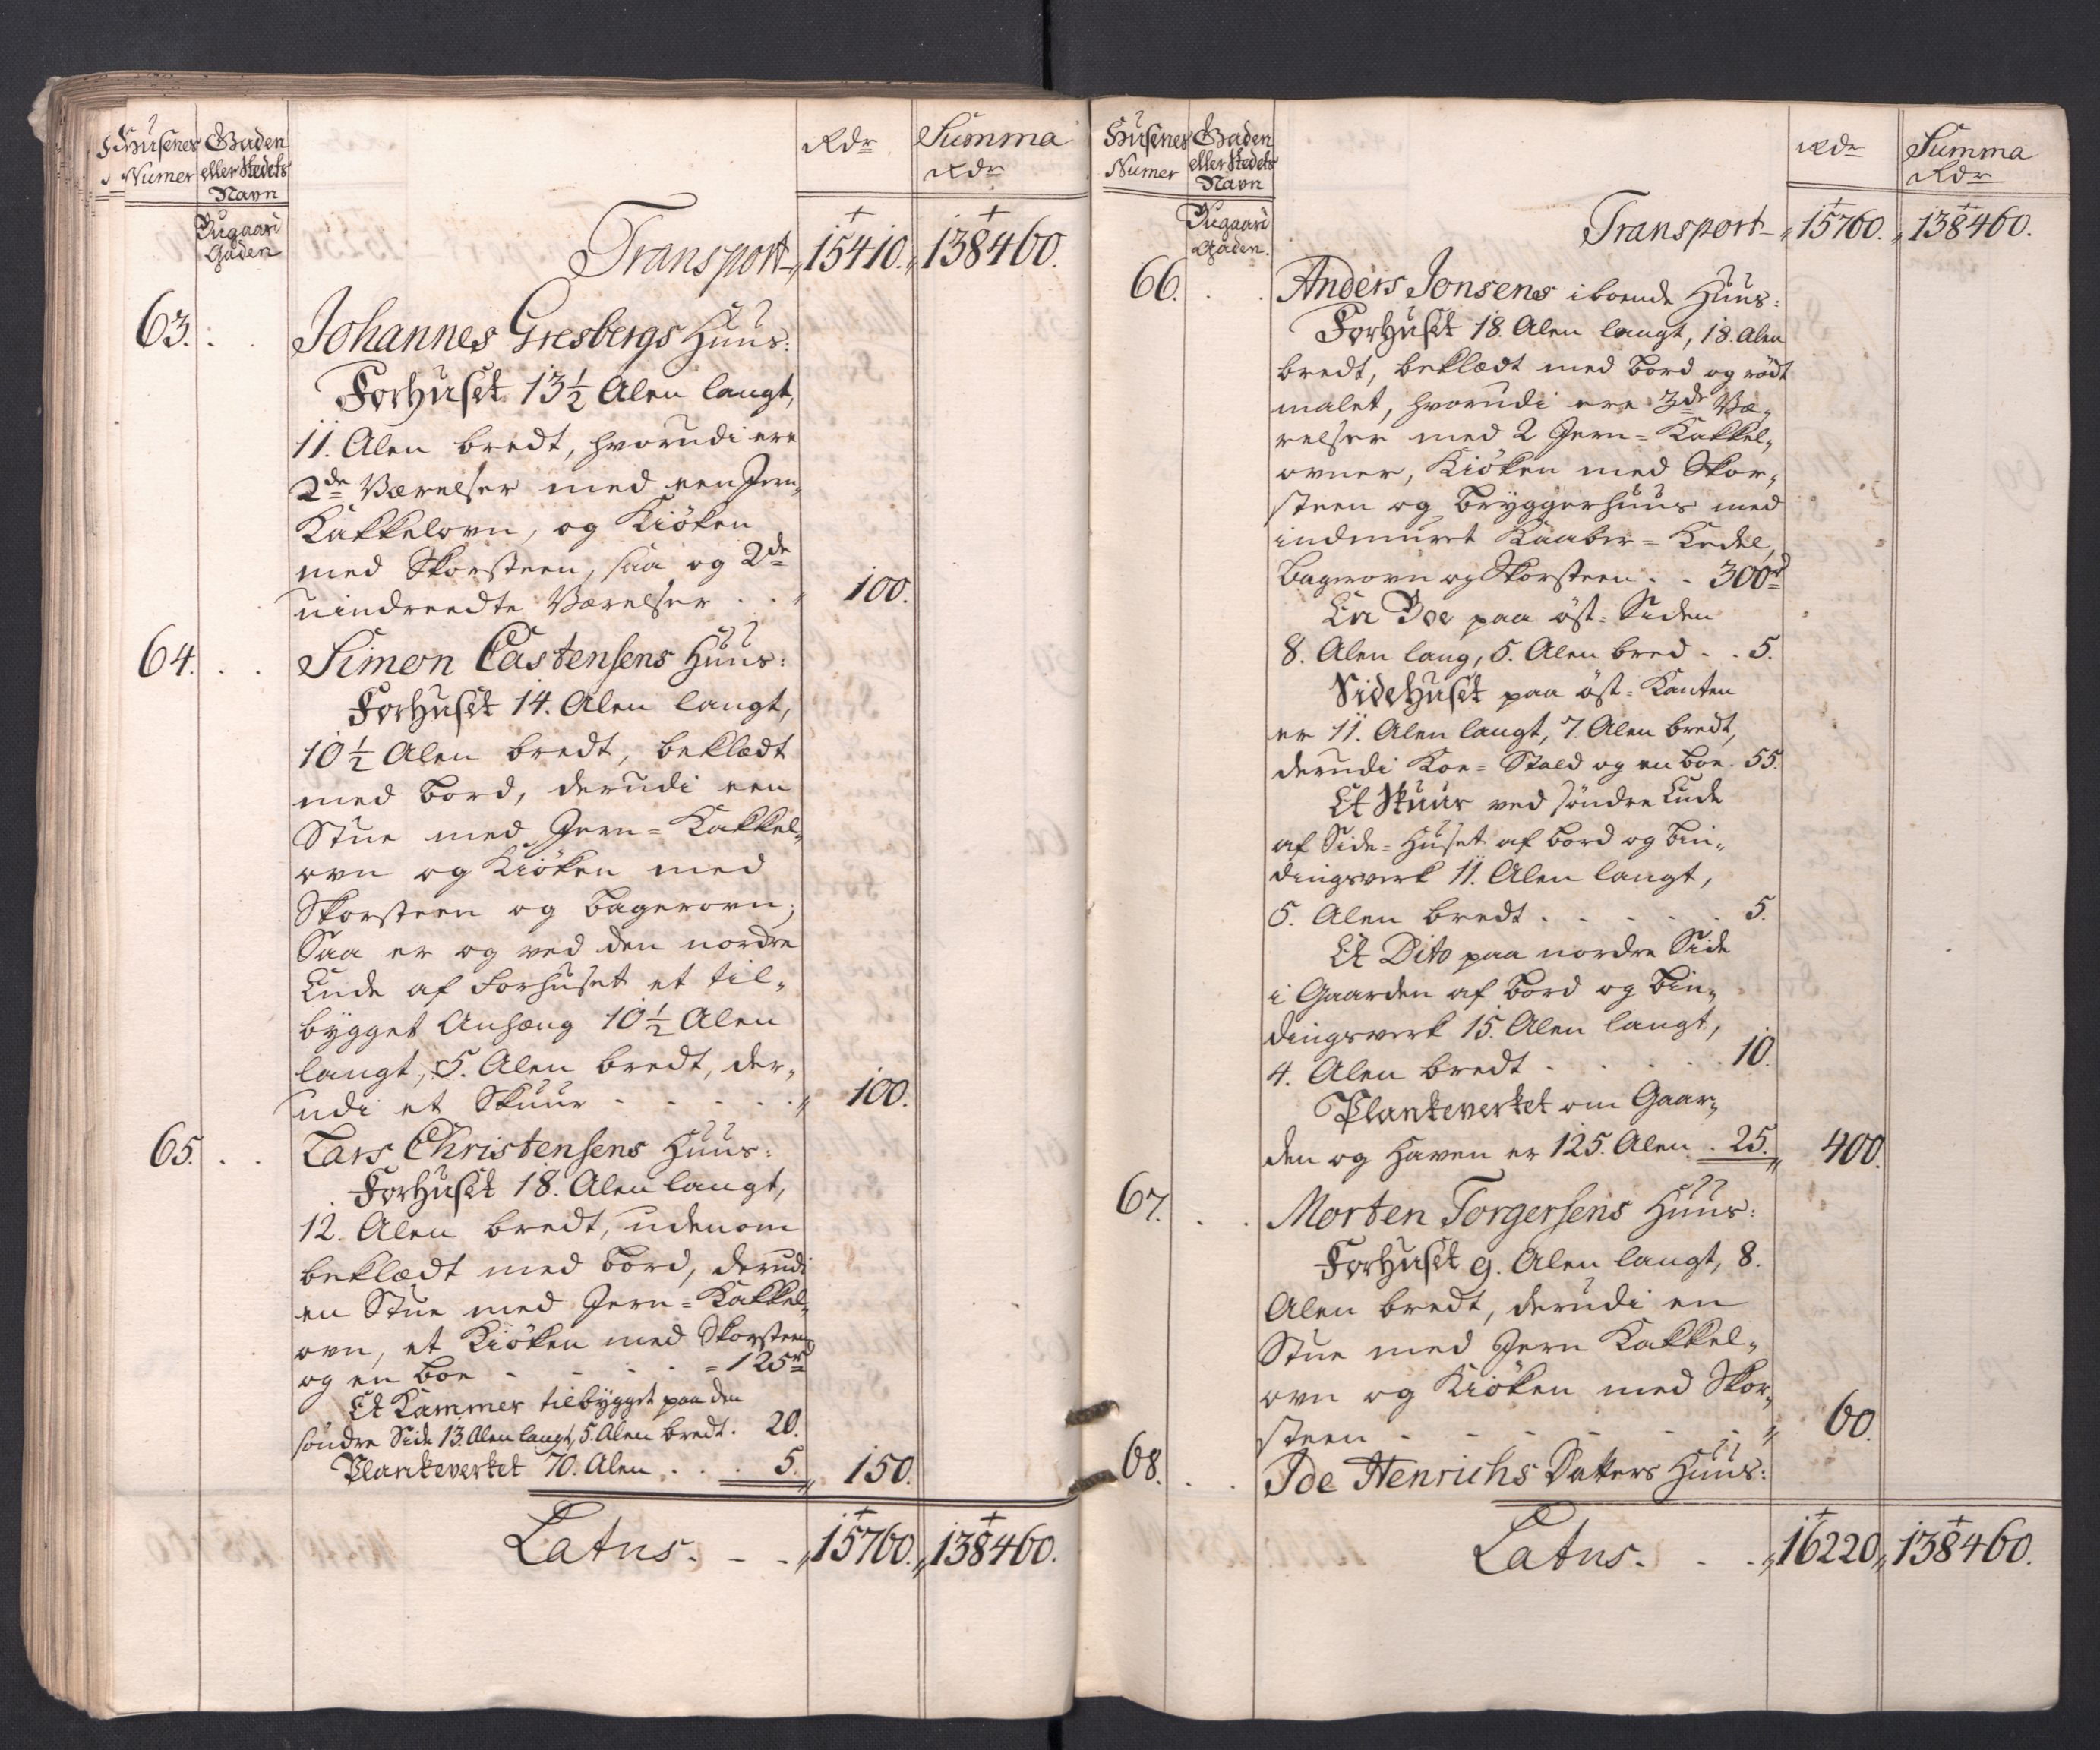 Husenes Gaden Rdr Summa
Numer eller Stedets Rdr
Navn
Gaden
Transport „ 15410. „ 138460.
63. Johannes Gresbergs Huus:
Forhuset 13½ Alen langt,
11. Alen bredt, hvorudi ere
2de Værelser med een Jern„
Kakkelovn, og Kiöken
med Skorsteen, saa og 2de
uindreedte Værelser . . „ 100.
64. Simon Castensens Huus:
Forhuset 14. Alen langt,
10½ Alen bredt, beklædt
med Bord, derudi een
Stue med Jern=Kakkel„
ovn og Kiöken med
Skorsteen og Bagerovn;
Saa er og ved den nordre
Ende af Forhuset et til„
bygget Anhæng 10½ Alen
langt, 5. Alen bredt, der„
udi et Skuur - - - - „ 100.
65. Lars Christensens Huus:
Forhuset 18. Alen langt,
12. Alen bredt, udenom
beklædt med Bord, derudi
en Stue med Jern=Kakkel„
ovn, et Kiöken med Skorsteen
og en Boe - - - - 125rd
Et Kammer tilbygget paa den
söndre Side 13. Alen langt, 5. Alen bredt. 20.
Plankeverket 70. Alen . . . 5. „ 150.
Latus. - - „ 15760. „ 138460.
Husenes Gaden Rdr Summa
Numer eller Stedets Rdr
Navn
Gaden.
Transport „ 15760. „ 138460.
66. Anders Jonsens iboende Huus:
Forhuset 18. Alen langt, 18. Alen
bredt, beklædt med Bord og rödt
malet, hvorudi ere 3de Væ„
relser med 2 Jern=Kakkel„
ovner, Kiöken med Skor„
steen og Bryggerhuus med
indmuret Kaaber=Kedel,
Bagerovn og Skorsteen . . 300rd
En Boe paa öst=Siden
8. Alen lang, 5. Alen bred . . 5.
Sidehuset paa öst=Kanten
er 11. Alen langt, 7. Alen bredt,
derudi Koe=Stald og en Boe. 55.
Et Skuur ved söndre Ende
af Side=Huset af Bord og Bin„
dingsverk 11. Alen langt,
5. Alen bredt . - - - . 5.
Et Dito paa nordre Side
i Gaarden af Bord og Bin„
dingsverk 15. Alen langt,
4. Alen bredt . . . . . 10.
Plankeverket om Gaar„
den og Haven er 125. Alen . 25. „ 400.
67. Morten Torgersens Huus:
Forhuset 9. Alen langt, 8.
Alen bredt, derudi en
Stue med Jern Kakkel„
ovn og Kiöken med Skor„
steen - - - - - - „ 60.
68. Ide Henrichs Datters Huus:
Latus. . . „ 16220 „ 138460.